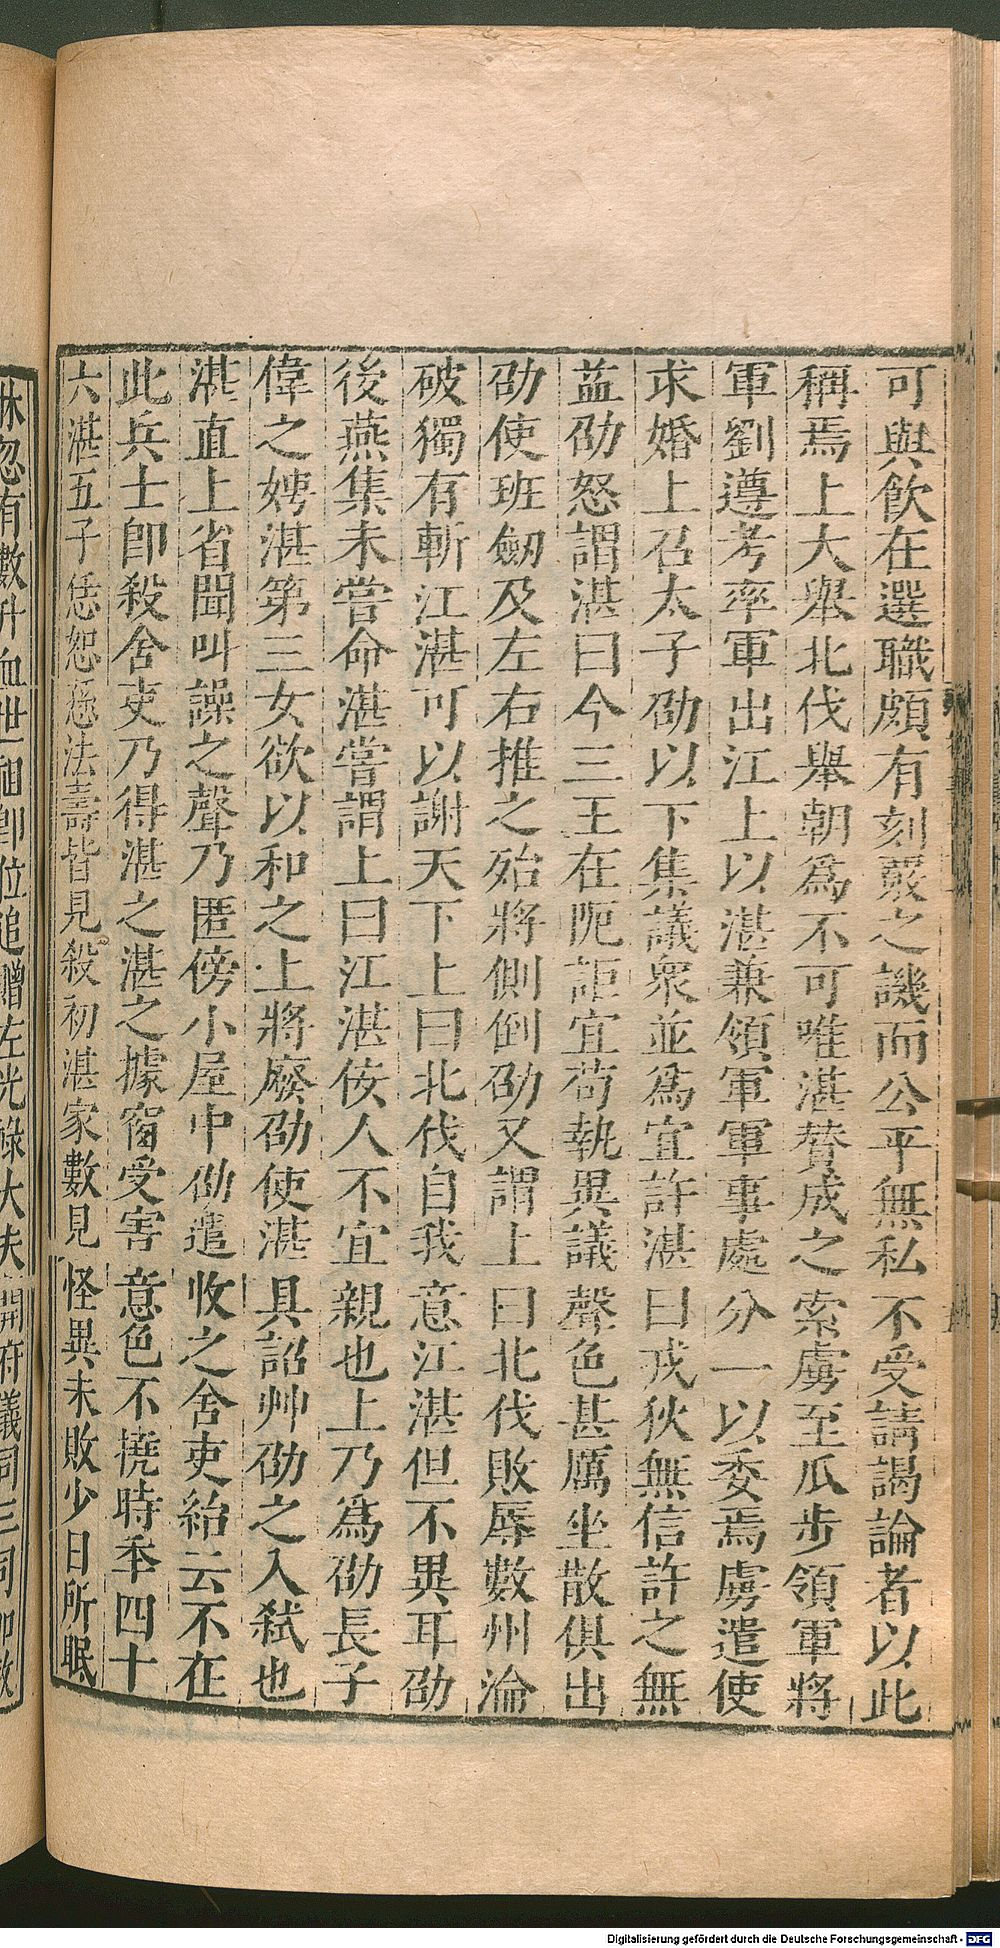 可與飲在選職頗有刻覈之譏而公平無私不受請謁論者以此
稱焉上大舉北伐舉朝爲不可唯湛贊成之索虜至瓜步領軍將
軍劉遵考率軍出江上以湛兼領軍軍事處分一以委焉虜遣使
求婚上召太子劭以下集議衆並爲宜許湛曰戎狄無信許之無
益劭怒謂湛曰今三王在阨詎宜苟執異議聲色甚厲坐散俱出
劭使班劒及左右推之殆將側倒劭又謂上曰北伐敗辱數州淪
破獨有斬江湛可以謝天下上曰北伐自我意江湛但不異耳劭
後燕集未嘗命湛嘗謂上曰江湛佞人不宜親也上乃爲劭長子
偉之娉湛第三女欲以和之上將廢劭使湛具詔艸劭之入弑也
湛直上省聞叫譟之聲乃匿傍小屋中劭遣收之舍吏紿云不在
此兵士卽殺舍吏乃得湛之湛之據窗受害意色不撓時年四十
六湛五子恁恕憼愻法壽皆見殺初湛家數見怪異未敗少日所眠
牀忽有數升血世祖卽位追贈左光祿大夫開府儀同三司
Digitalisierung gefördert durch die Deutsche Forschungsgemeinschaft - DFG